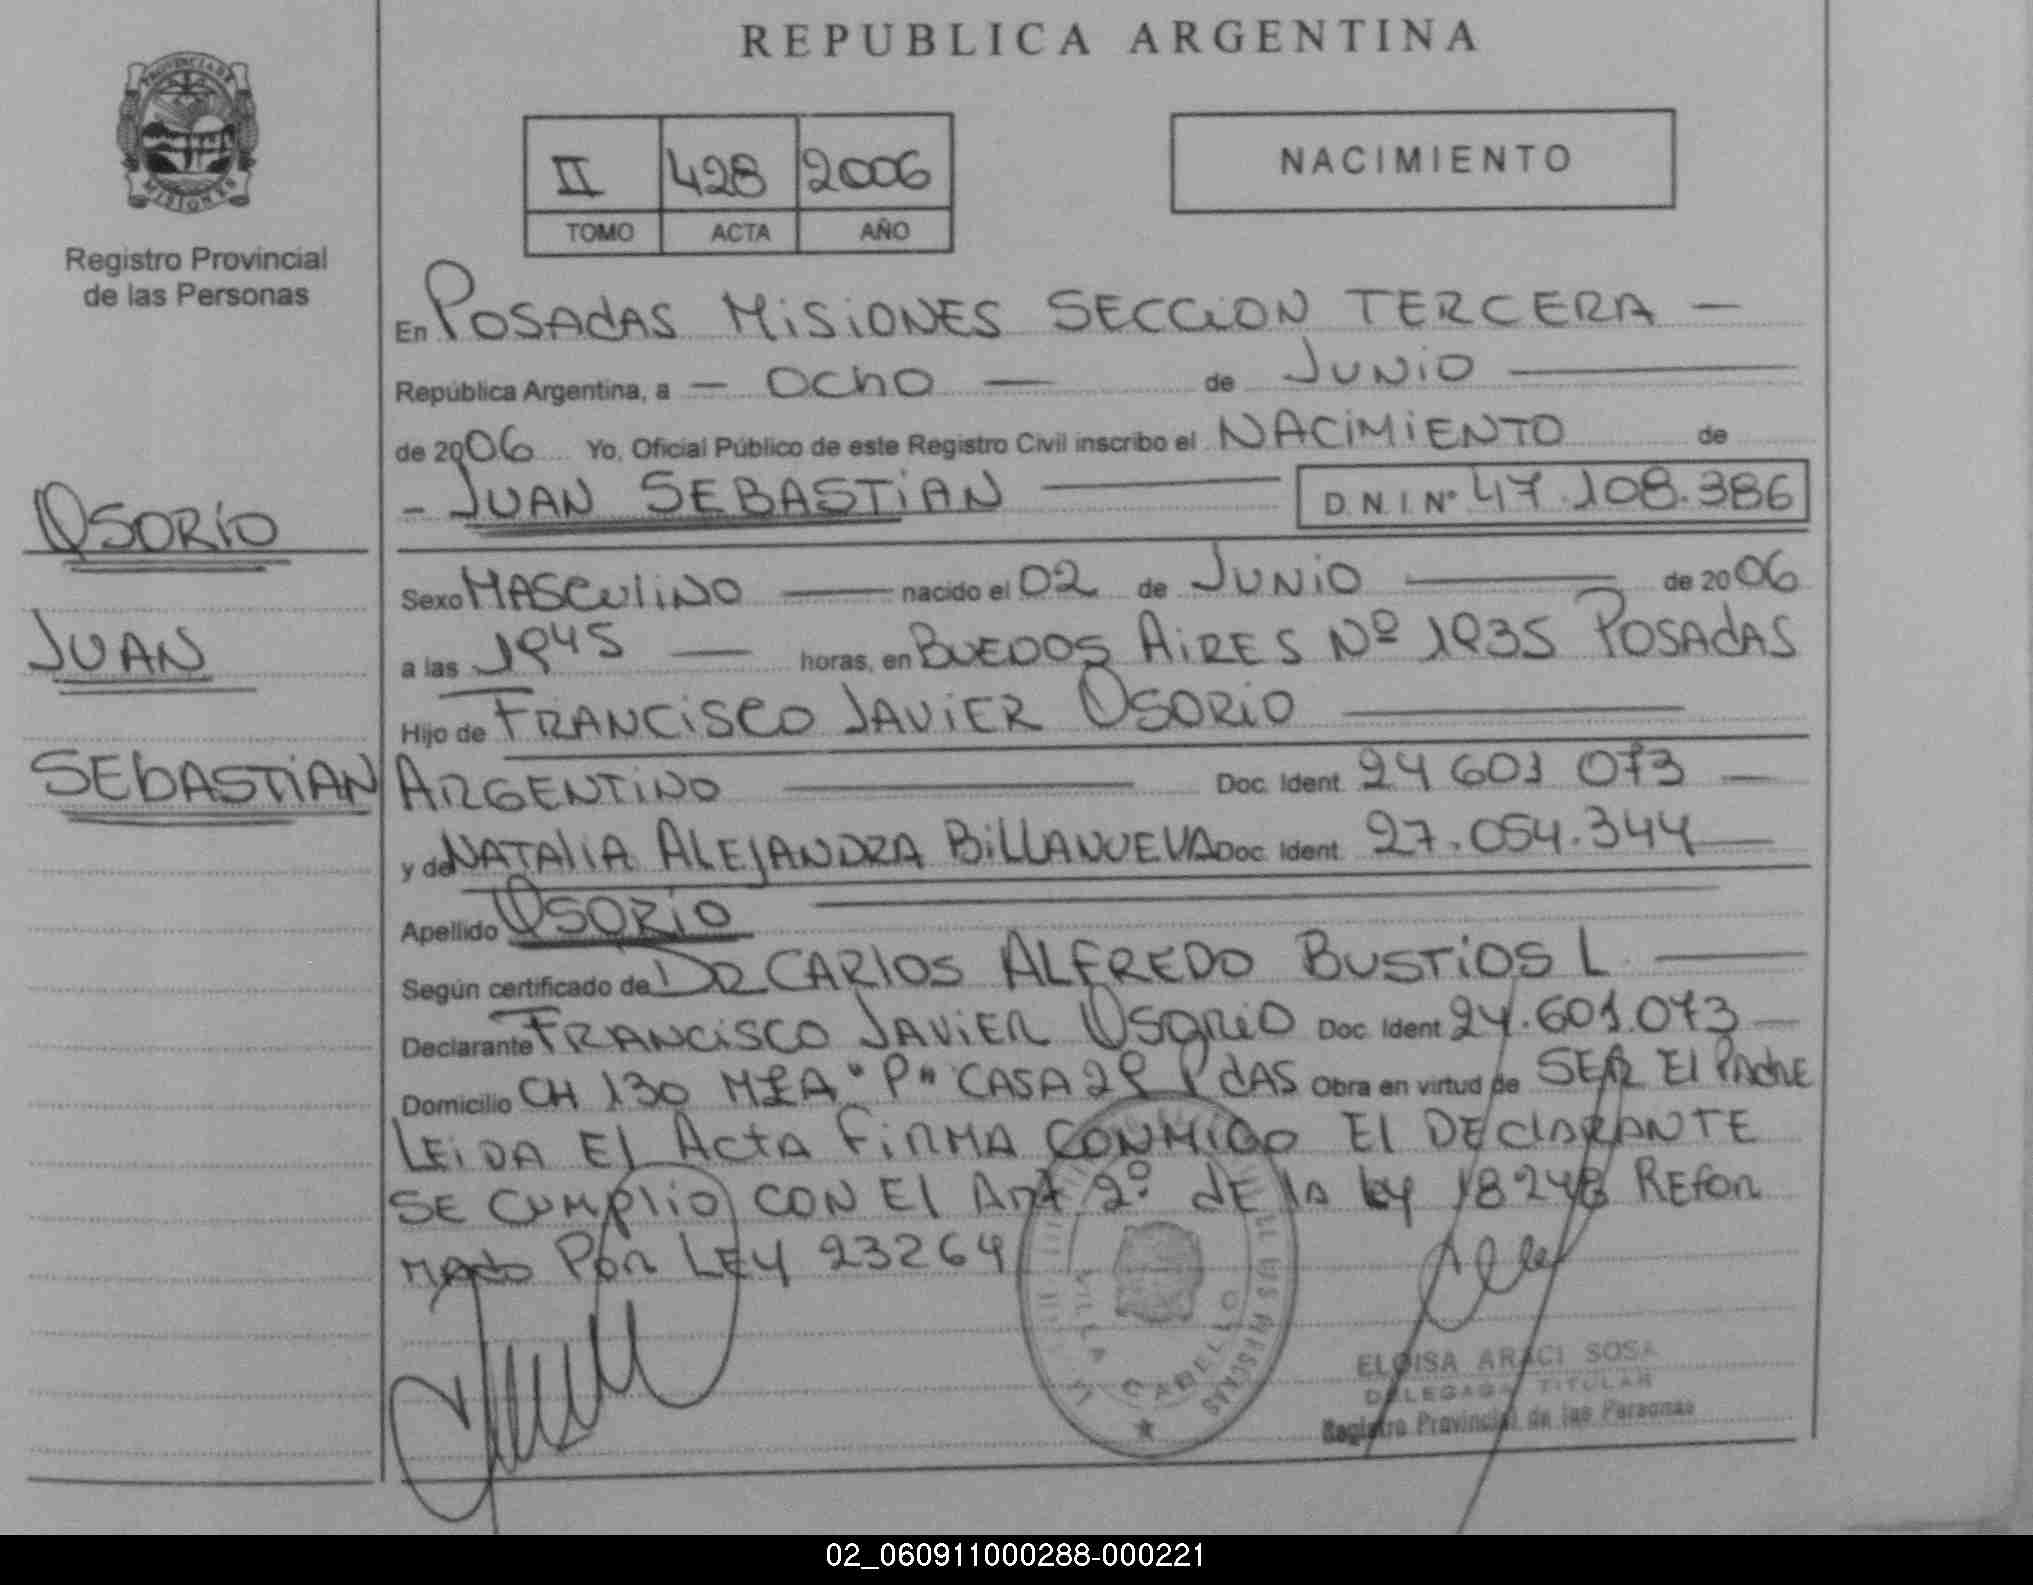 REPUBLICA ARGENTINA
PROVINCIA DE
MISIONES
Registro Provincial
de las Personas
II 428 2006
TOMO ACTA AÑO
NACIMIENTO
OSORIO
JUAN
SEBASTIAN
En POSADAS MISIONES SECCION TERCERA —
República Argentina, a — OCHO — de JUNIO —
de 2006 Yo, Oficial Público de este Registro Civil inscribo el NACIMIENTO de
- JUAN SEBASTIAN — D.N.I. Nº 47.108.386
Sexo MASCULINO — nacido el 02 de JUNIO — de 2006
a las 1945 — horas, en BUENOS AIRES Nº 1935 POSADAS
Hijo de FRANCISCO JAVIER OSORIO —
ARGENTINO — Doc. Ident. 24 601 073 —
y de NATALIA ALEJANDRA BILLANUEVA Doc. Ident. 27.054.344 —
Apellido OSORIO —
Según certificado de DR CARLOS ALFREDO BUSTIOS L —
Declarante FRANCISCO JAVIER OSORIO Doc. Ident. 24.601.073 —
Domicilio CH 130 MZA "P" CASA 29 PDAS Obra en virtud de SER El PADRE
LEIDA El ACTA FIRMA CONMIGO El DEClARANTE
SE CUMPLIO CON El Art 2º de la ley 18248 REFOR
MADO POR LEY 23264
VILLA CABELLO
ELOISA ARACI SOSA
DELEGADA TITULAR
Registro Provincial de las Personas
02_060911000288-000221